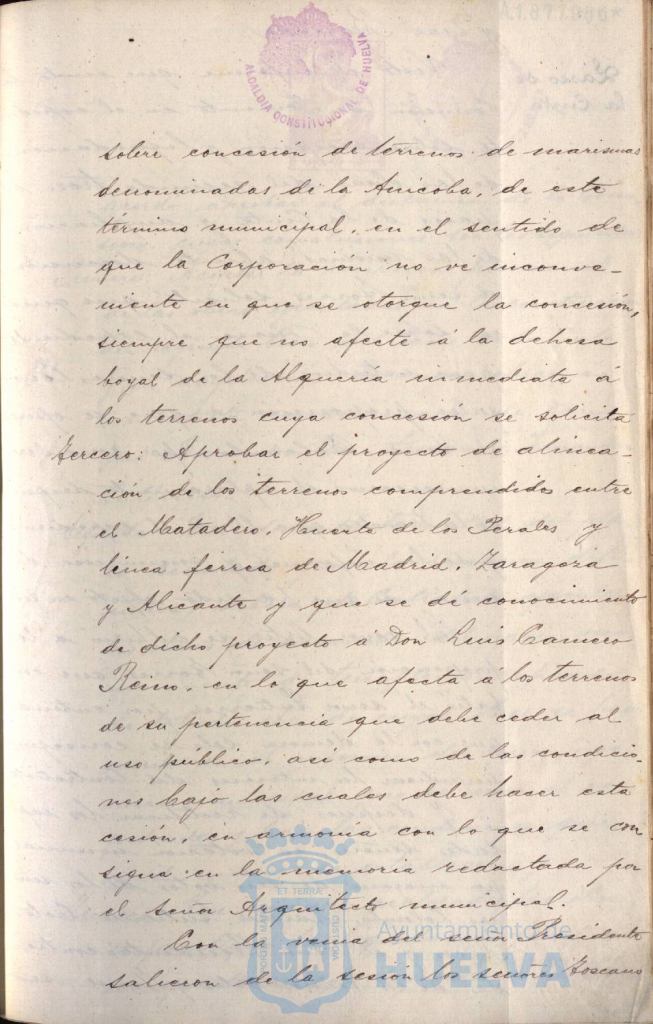 A1877986*
ALCALDIA CONSTITUCIONAL DE HUELVA
sobre concesión de terrenos de marismas
denominadas de la Anicoba, de este
término municipal, en el sentido de
que la Corporación no vé inconve-
niente en que se otorgue la concesión,
siempre que no afecte á la dehesa
boyal de la Alquería inmediata á
los terrenos cuya concesión se solicita
Tercero: Aprobar el proyecto de alinea-
ción de los terrenos comprendidos entre
el Matadero, Huerta de los Perales y
línea férrea de Madrid, Zaragoza
y Alicante y que se dé conocimiento
de dicho proyecto á Don Luis Camero
Reino, en lo que afecta á los terrenos
de su pertenencia que debe ceder al
uso público, así como de las condicio-
nes bajo las cuales debe hacer esta
cesión, en armonía con lo que se con
signa en la memoria redactada por
el señor Arquitecto municipal.
Con la venia del señor Presidente
salieron de la sesión los señores Toscano
ET TERRÆ
PORTUS MARIS
CUSTODIA
Ayuntamiento de
HUELVA